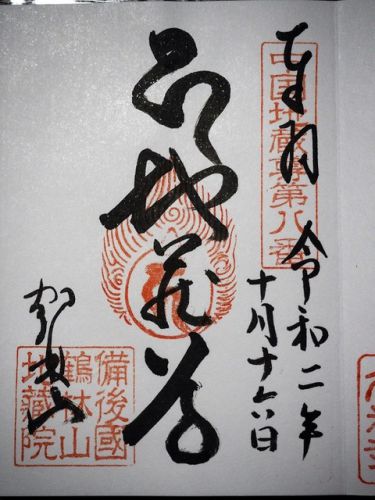 奉拝
中国地蔵尊第八番
令和二年
十月十六日
地蔵尊
備後國
鶴林山
地蔵院